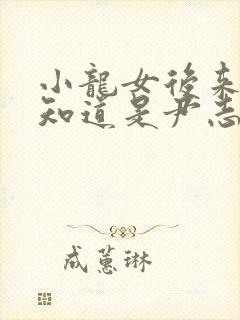 小龍女後来
知道是尹志
成蕙琳